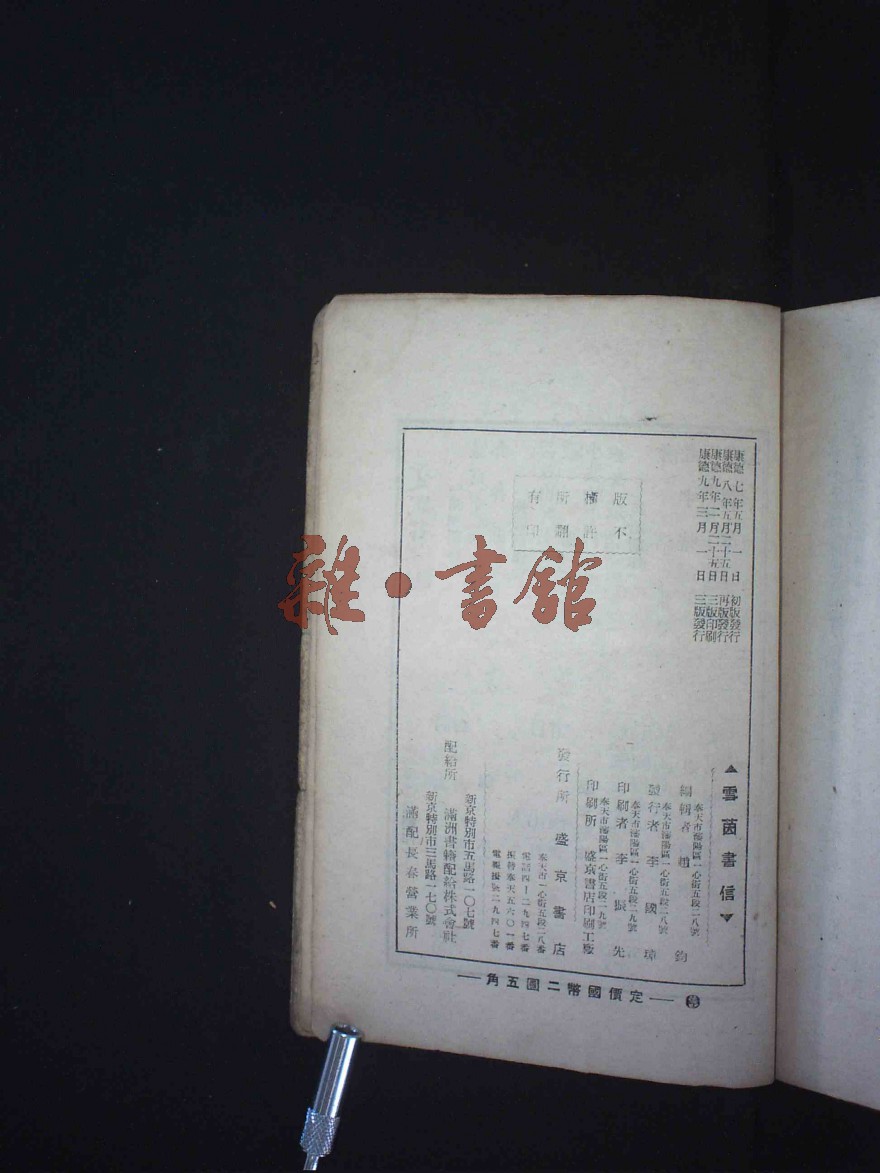 康德七年五月一日 初版發行
康德八年五月二十五日 再版發行
康德九年二月二十五日 三版印刷
康德九年三月一日 三版發行
版權所有
不許翻印
▲雲茵書信▼
奉天市瀋陽區一心街五段二八號
編輯者 趙 鈞
奉天市瀋陽區一心街五段二八號
發行者 李國璋
奉天市瀋陽區一心街五段二九號
印刷者 李振先
奉天市瀋陽區一心街五段二九號
印刷所 盛京書店印刷工廠
發行所 盛京書店
奉天市一心街五段二八番
電話四-二九四七番
振替奉天五六〇一番
電報掛號二九四七番
新京特別市五馬路一〇七號
配給所 滿洲書籍配給株式會社
新京特別市三馬路一七〇號
滿配長春營業所
定價國幣二圓五角
雜·書館